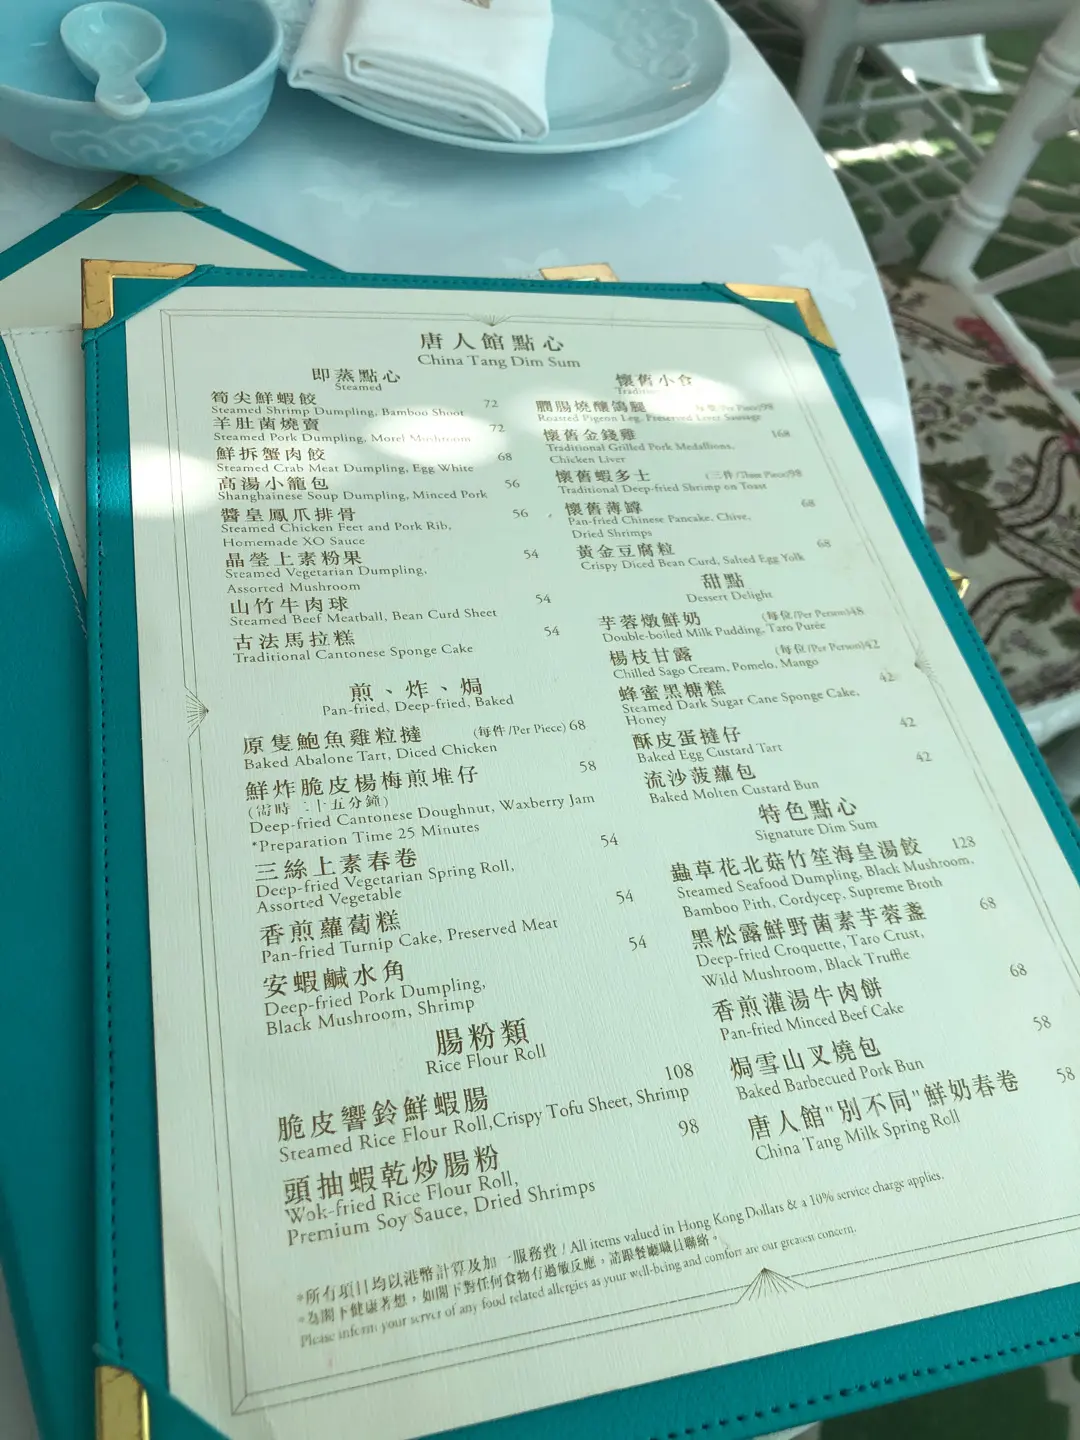 唐人館點心
China Tang Dim Sum
即蒸點心
Steamed
筍尖鮮蝦餃
Steamed Shrimp Dumpling, Bamboo Shoot 72
羊肚菌燒賣
Steamed Pork Dumpling, Morel Mushroom 72
鮮拆蟹肉餃 68
Steamed Crab Meat Dumpling, Egg White
高湯小籠包 56
Shanghainese Soup Dumpling, Minced Pork
醬皇鳳爪排骨 56
Steamed Chicken Feet and Pork Rib,
Homemade XO Sauce
晶瑩上素粉果 54
Steamed Vegetarian Dumpling,
Assorted Mushroom
山竹牛肉球 54
Steamed Beef Meatball, Bean Curd Sheet
古法馬拉糕 54
Traditional Cantonese Sponge Cake
煎、炸、焗
Pan-fried, Deep-fried, Baked
原隻鮑魚雞粒撻 (每件/Per Piece) 68
Baked Abalone Tart, Diced Chicken
鮮炸脆皮楊梅煎堆仔 58
(需時二十五分鐘)
Deep-fried Cantonese Doughnut, Waxberry Jam
*Preparation Time 25 Minutes
三絲上素春卷 54
Deep-fried Vegetarian Spring Roll,
Assorted Vegetable
香煎蘿蔔糕 54
Pan-fried Turnip Cake, Preserved Meat
安蝦鹹水角 54
Deep-fried Pork Dumpling,
Black Mushroom, Shrimp
腸粉類
Rice Flour Roll
脆皮響鈴鮮蝦腸 108
Steamed Rice Flour Roll,Crispy Tofu Sheet, Shrimp
頭抽蝦乾炒腸粉 98
Wok-fried Rice Flour Roll,
Premium Soy Sauce, Dried Shrimps
懷舊小食
膶腸燒釀鴿腿 (每隻/Per Piece)98
Roasted Pigeon Leg, Preserved Liver Sausage
懷舊金錢雞 168
Traditional Grilled Pork Medallions,
Chicken Liver
懷舊蝦多士 (三件/Three Piece)98
Traditional Deep-fried Shrimp on Toast
懷舊薄罉 68
Pan-fried Chinese Pancake, Chive,
Dried Shrimps
黃金豆腐粒 68
Crispy Diced Bean Curd, Salted Egg Yolk
甜點
Dessert Delight
芋蓉燉鮮奶 (每位/Per Person)48
Double-boiled Milk Pudding, Taro Purée
楊枝甘露 (每位/Per Person)42
Chilled Sago Cream, Pomelo, Mango
蜂蜜黑糖糕 42
Steamed Dark Sugar Cane Sponge Cake,
Honey
酥皮蛋撻仔 42
Baked Egg Custard Tart
流沙菠蘿包 42
Baked Molten Custard Bun
特色點心
Signature Dim Sum
蟲草花北菇竹笙海皇湯餃 128
Steamed Seafood Dumpling, Black Mushroom,
Bamboo Pith, Cordycep, Supreme Broth
黑松露鮮野菌素芋蓉盞 68
Deep-fried Croquette, Taro Crust,
Wild Mushroom, Black Truffle
香煎灌湯牛肉餅 68
Pan-fried Minced Beef Cake
焗雪山叉燒包 58
Baked Barbecued Pork Bun
唐人館"別不同"鮮奶春卷 58
China Tang Milk Spring Roll
*所有項目均以港幣計算及加一服務費 / All items valued in Hong Kong Dollars & a 10% service charge applies.
*為閣下健康著想，如閣下對任何食物有過敏反應，請跟餐廳職員聯絡。
Please inform your server of any food related allergies as your well-being and comfort are our greatest concern.